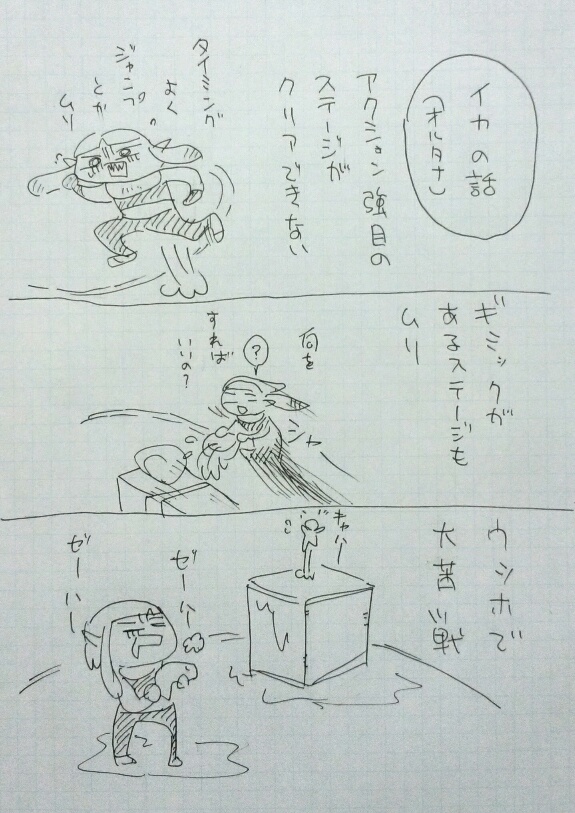 イカの話
(オルタナ)
アクション強目の
ステージが
クリアできない
タイミング
よく
ジャンプ
とか
ムリ
ギミックが
あるステージも
ムリ
何を
すれば
いいの?
?
シャ
ウツホで
大苦戦
キャハー
ゼーハー
ゼーハー